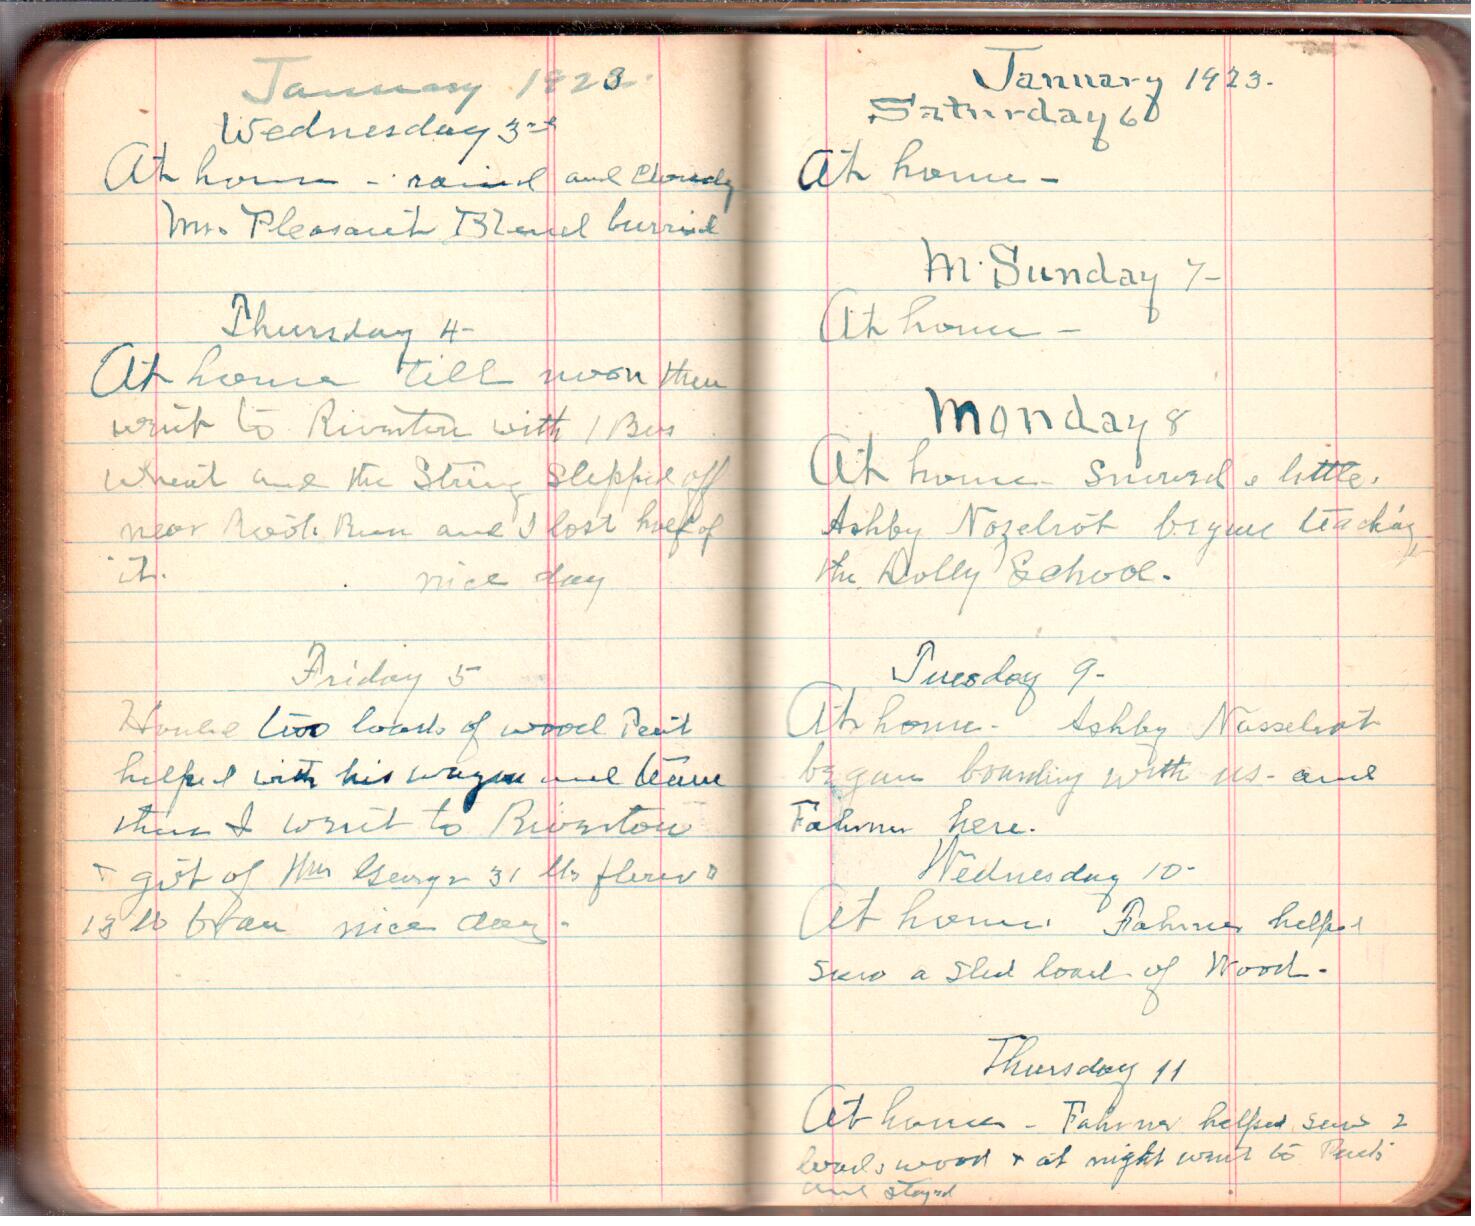 January 1923.
Wednesday 3rd
At home - rained and cloudy
Mrs. Pleasant Bland burried
Thursday 4-
At home till noon then
went to Riverton with 1 Bus
wheat and the String slepped off
near Root Run and I lost half of
it. nice day
Friday 5
Houled two loads of wood Peat
helped with his wagon and team
then I went to Riverton
& got of Mrs George 31 lbs flower &
13 lb bran nice day.
January 1923.
Saturday 6
At home -
M. Sunday 7-
At home -
Monday 8
At home - Snowed a little.
Ashby Nozelrot began teaching
the Dolly School.
Tuesday 9-
At home - Ashby Nosselrot
began boarding with us - and
Fahrner here.
Wednesday 10-
At home. Fahrner helped
saw a sled load of Wood.
Thursday 11
At home - Fahrner helped saw 2
loads wood & at night went to Peats
and stayed